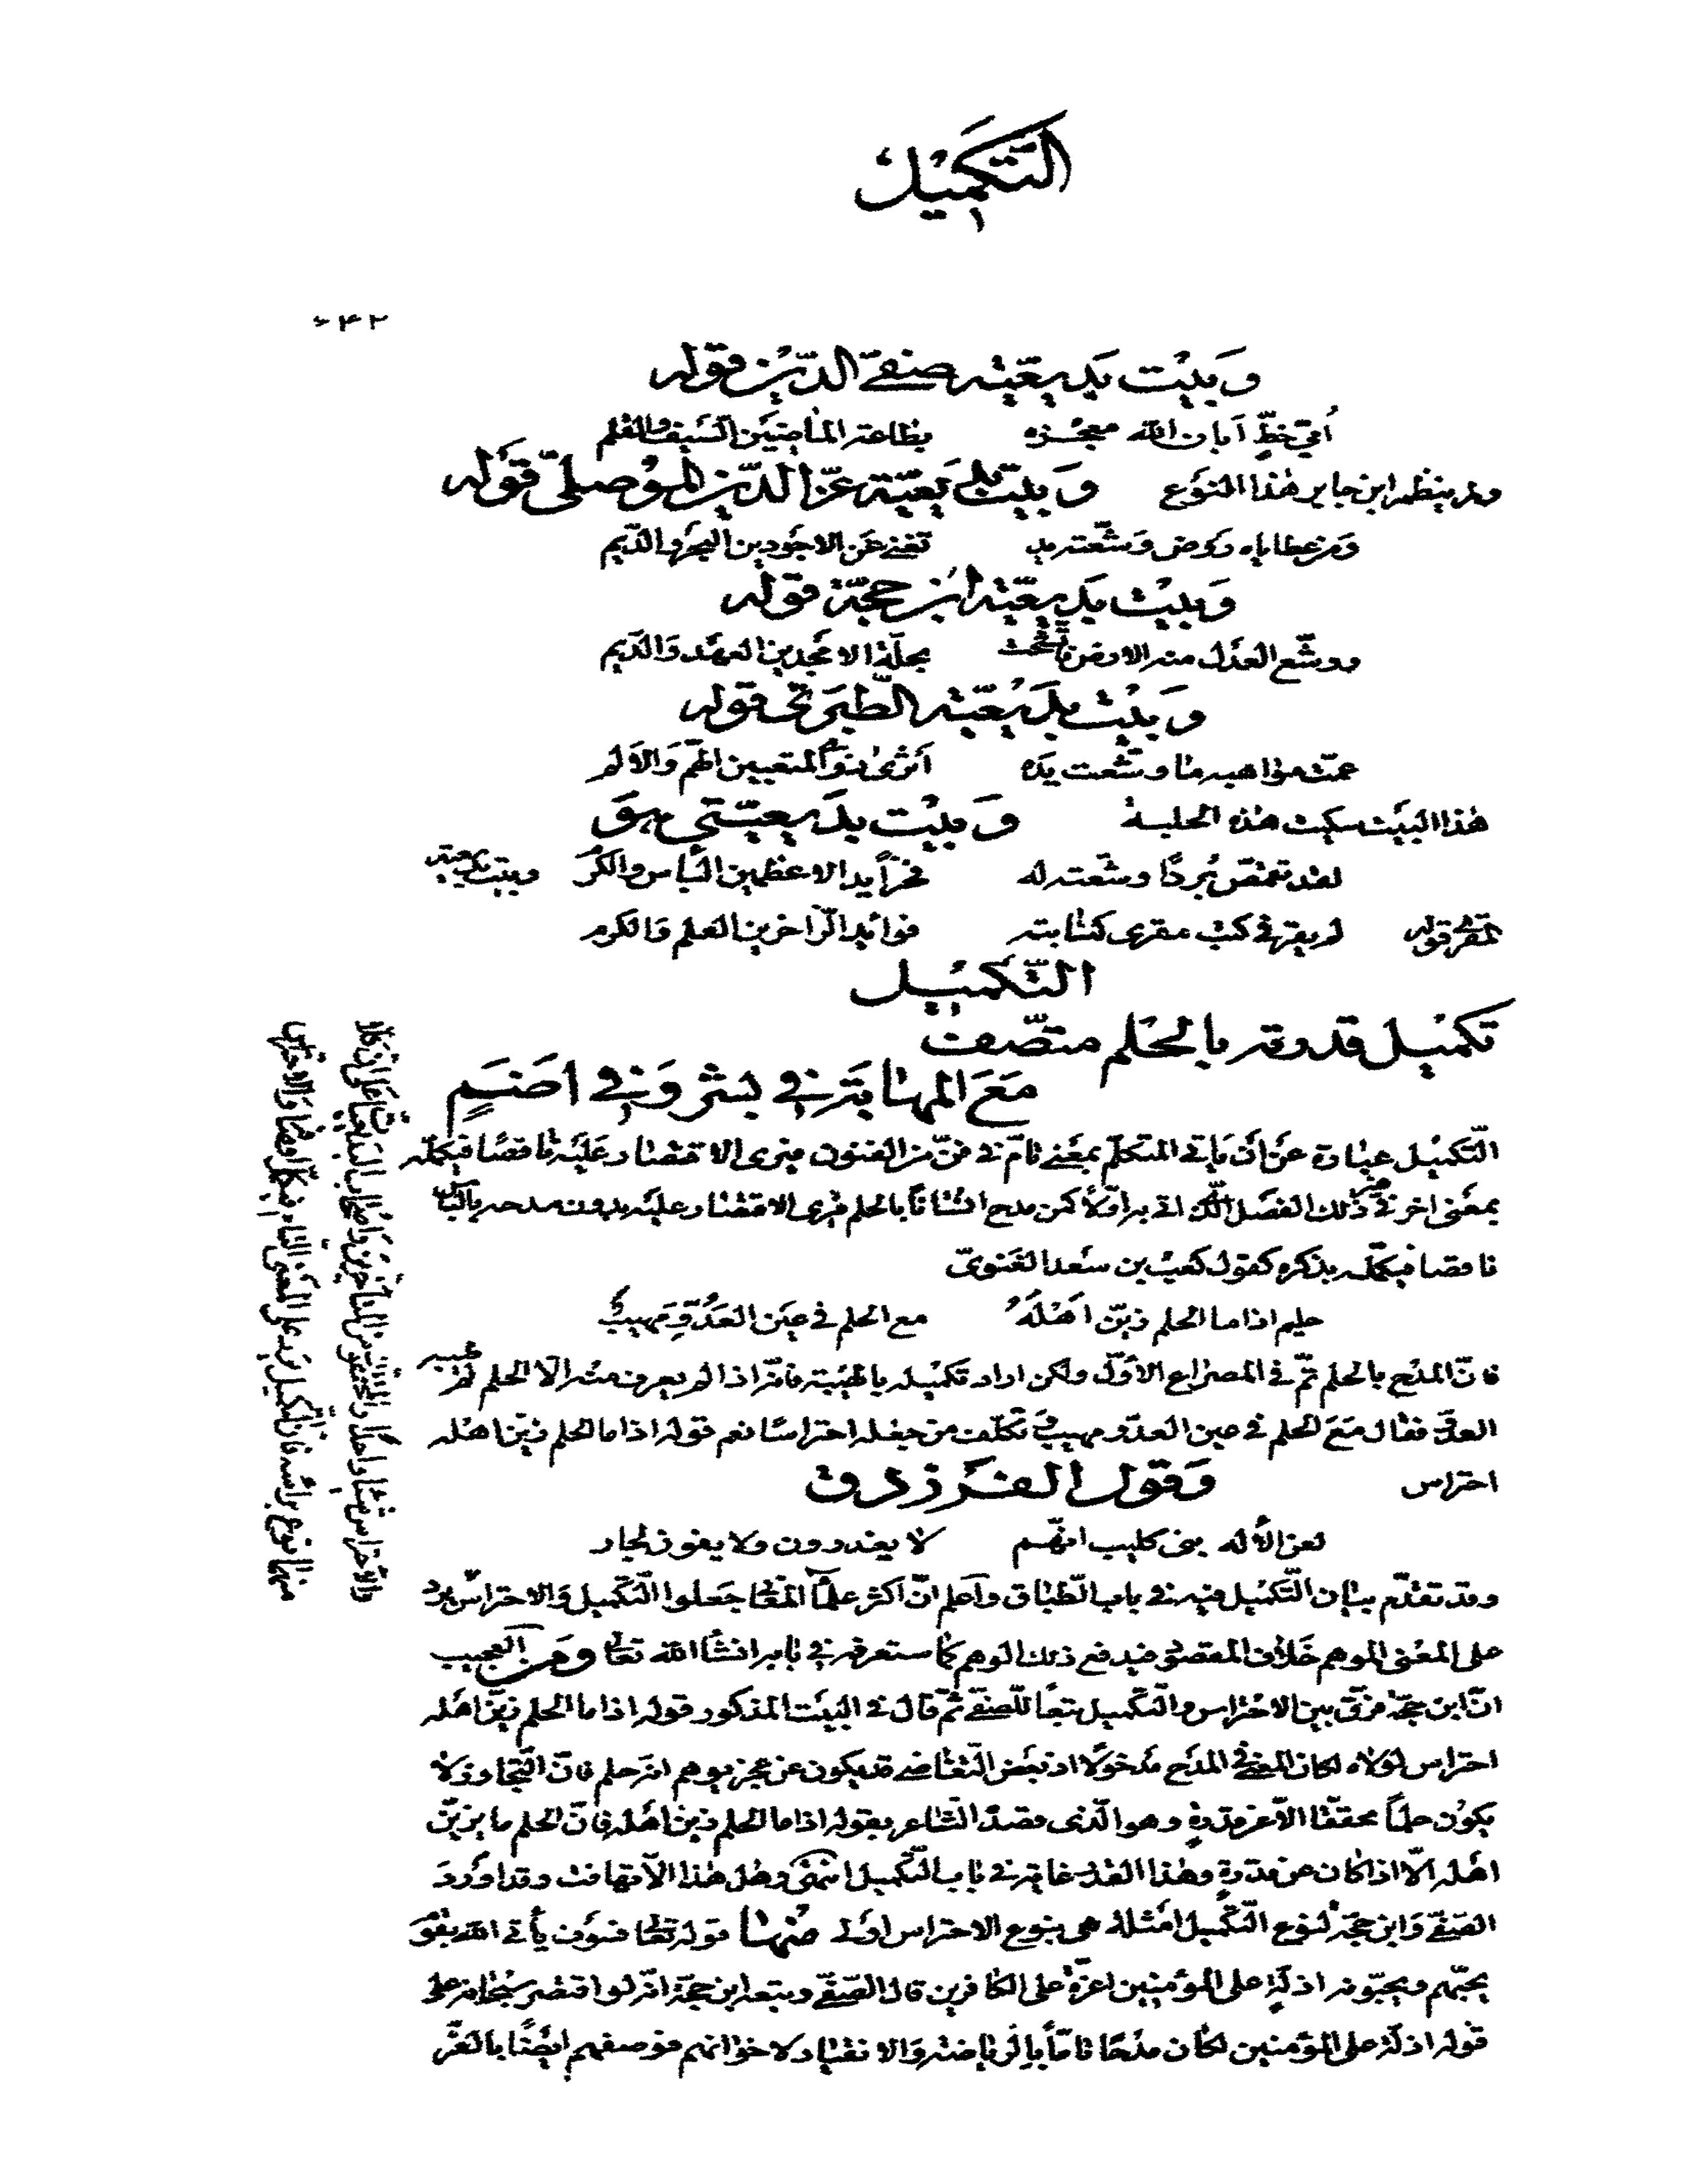 التكميل
٦٤٢
وبيت بديعيّة صفيّ الدّين قوله
أميّ خطّ أبان الله معجزه بطاعة الماضيين السّيف والقلم
ولم ينظم ابن جابر هذا النوع وبيت بديعيّة عزّ الدّين الموصليّ قوله
ومن عطاياه روض وشّعته يد تغني عن الاجودين البحر والدّيم
وبيت بديعيّة ابن حجّة قوله
ووشّع العدل منه الارض فاتّشحت بحلّة الامجدين العهد والدّيم
وبيت بديعيّة الطّبريّ قوله
عمّت مواهبه ما وشّعت يده المتعبين الهمّ والالم
هذا البيت سكيت هذه الحلبة وبيت بديعيّتي هو
لقد تقمّص بردًا وشّعته له فخرًا يد الاعظمين البأس والكرم وبيت بديعية
المقري قوله لم يقر في كتب مقرى كتابته فوائد الزّاخرين العلم والكرم
التّكميل
تكميل قدرته بالحلم متّصف
مع المهابة في بشر وفي اضم
التّكميل عبارة عن أن يأتي المتكلّم بمعنى تامّ في فنّ من الفنون فيرى الاقتصار عليه ناقصًا فيكمّله
بمعنى اخر في ذلك الفصل الّذي اتى به اوّلا كمن مدح انسانًا بالحلم فيرى الاقتصار عليه بدون مدحه بالبأس
ناقصا فيكمّله بذكره كقول كعب بن سعد الغنويّ
حليم اذا ما الحلم زيّن اهله مع الحلم في عين العدوّ مهيب
فانّ المدح بالحلم تمّ في المصراع الاوّل ولكن اراد تكميله بالهيبة فانّه اذا لم يعرف منه الّا الحلم لم يهبه
العدوّ فقال مع الحلم في عين العدوّ مهيب وتكلّف من جعله احتراسًا نعم قوله اذا ما الحلم زيّن اهله
احتراس وقول الفرزدق
لعن الاله بني كليب انّهم لا يغدرون ولا يفون لجار
وقد تقدّم بيان التّكميل فيه في باب الطّباق وأعلم انّ اكثر علماء المعاني جعلوا التّكميل والاحتراس
والاحتراس شيئا واحدًا
منهما نوع برأسه فانّ التّكميل يرد على المعنى التام فيكمّل اوصافه والاحتراس يرد
على المعنى الموهم خلاف المقصود فيدفع ذلك الوهم كما ستعرفه في بابه انشاء الله تعالى ومن العجيب
انّ ابن حجّة فرّق بين الاحتراس والتّكميل تبعًا للصّفيّ ثمّ قال في البيت المذكور قوله اذا ما الحلم زيّن اهله
احتراس لولاه لكان المعنى في المدح مدخولا اذ بعض التّغاضي قد يكون عن عجز يوهم انّه حلم فانّ التّجاوز لا
يكون حلمًا محققًا الّا عن قدرة وهو الّذي قصد الشّاعر بقوله اذا ما الحلم زيّن اهله فانّ الحلم ما يزيّن
اهله الّا اذا كان عن قدرة وهذا القدر غايته في باب التّكميل انتهى وهل هذا الّا تهافت وقد اورد
الصّفيّ وابن حجّة لنوع التّكميل امثلة هي بنوع الاحتراس اولى منها قوله تعالى فسوف يأتي الله بقوم
يحبّهم ويحبّونه اذلّة على المؤمنين اعزّة على الكافرين قال الصّفيّ وتبعه ابن حجّة انّه لو اقتصر سبحانه على
قوله اذلّة على المؤمنين لكان مدحًا تامّاً بالرّياضة والانقياد لاخوانهم فوصفهم ايضًا بالعزّ